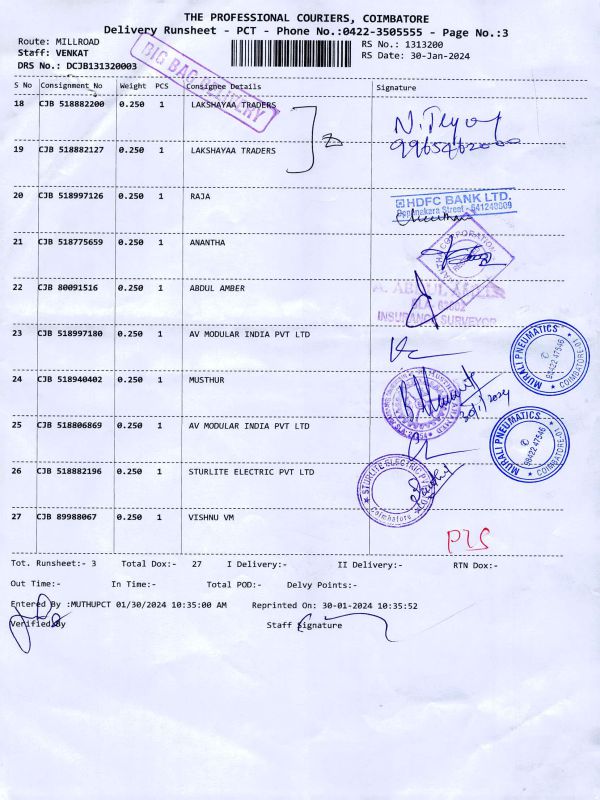 THE PROFESSIONAL COURIERS, COIMBATORE
Delivery Runsheet - PCT - Phone No.:0422-3505555 - Page No.:3
Route: MILLROAD
RS No.: 1313200
Staff: VENKAT
RS Date: 30-Jan-2024
DRS No.: DCJB131320003
BIG BAG DELIVERY
S No Consignment_No Weight PCS Consignee Details Signature
18 CJB 518882200 0.250 1 LAKSHAYAA TRADERS
19 CJB 518882127 0.250 1 LAKSHAYAA TRADERS
20 CJB 518997126 0.250 1 RAJA
HDFC BANK LTD.
21 CJB 518775659 0.250 1 ANANTHA
CORPORATION
22 CJB 80091516 0.250 1 ABDUL AMBER
INSURANCE SURVEYOR
23 CJB 518997180 0.250 1 AV MODULAR INDIA PVT LTD
MURALI PNEUMATICS
98422 47546
COIMBATORE-01
24 CJB 518940402 0.250 1 MUSTHUR
30/1/2024
25 CJB 518806869 0.250 1 AV MODULAR INDIA PVT LTD
MURALI PNEUMATICS
98422 47546
COIMBATORE-01
26 CJB 518882196 0.250 1 STURLITE ELECTRIC PVT LTD
STURLITE ELECTRIC PVT
Coimbatore
27 CJB 89988067 0.250 1 VISHNU VM
Tot. Runsheet:- 3 Total Dox:- 27 I Delivery:- II Delivery:- RTN Dox:-
Out Time:- In Time:- Total POD:- Delvy Points:-
Entered By :MUTHUPCT 01/30/2024 10:35:00 AM Reprinted On: 30-01-2024 10:35:52
Verified By Staff Signature